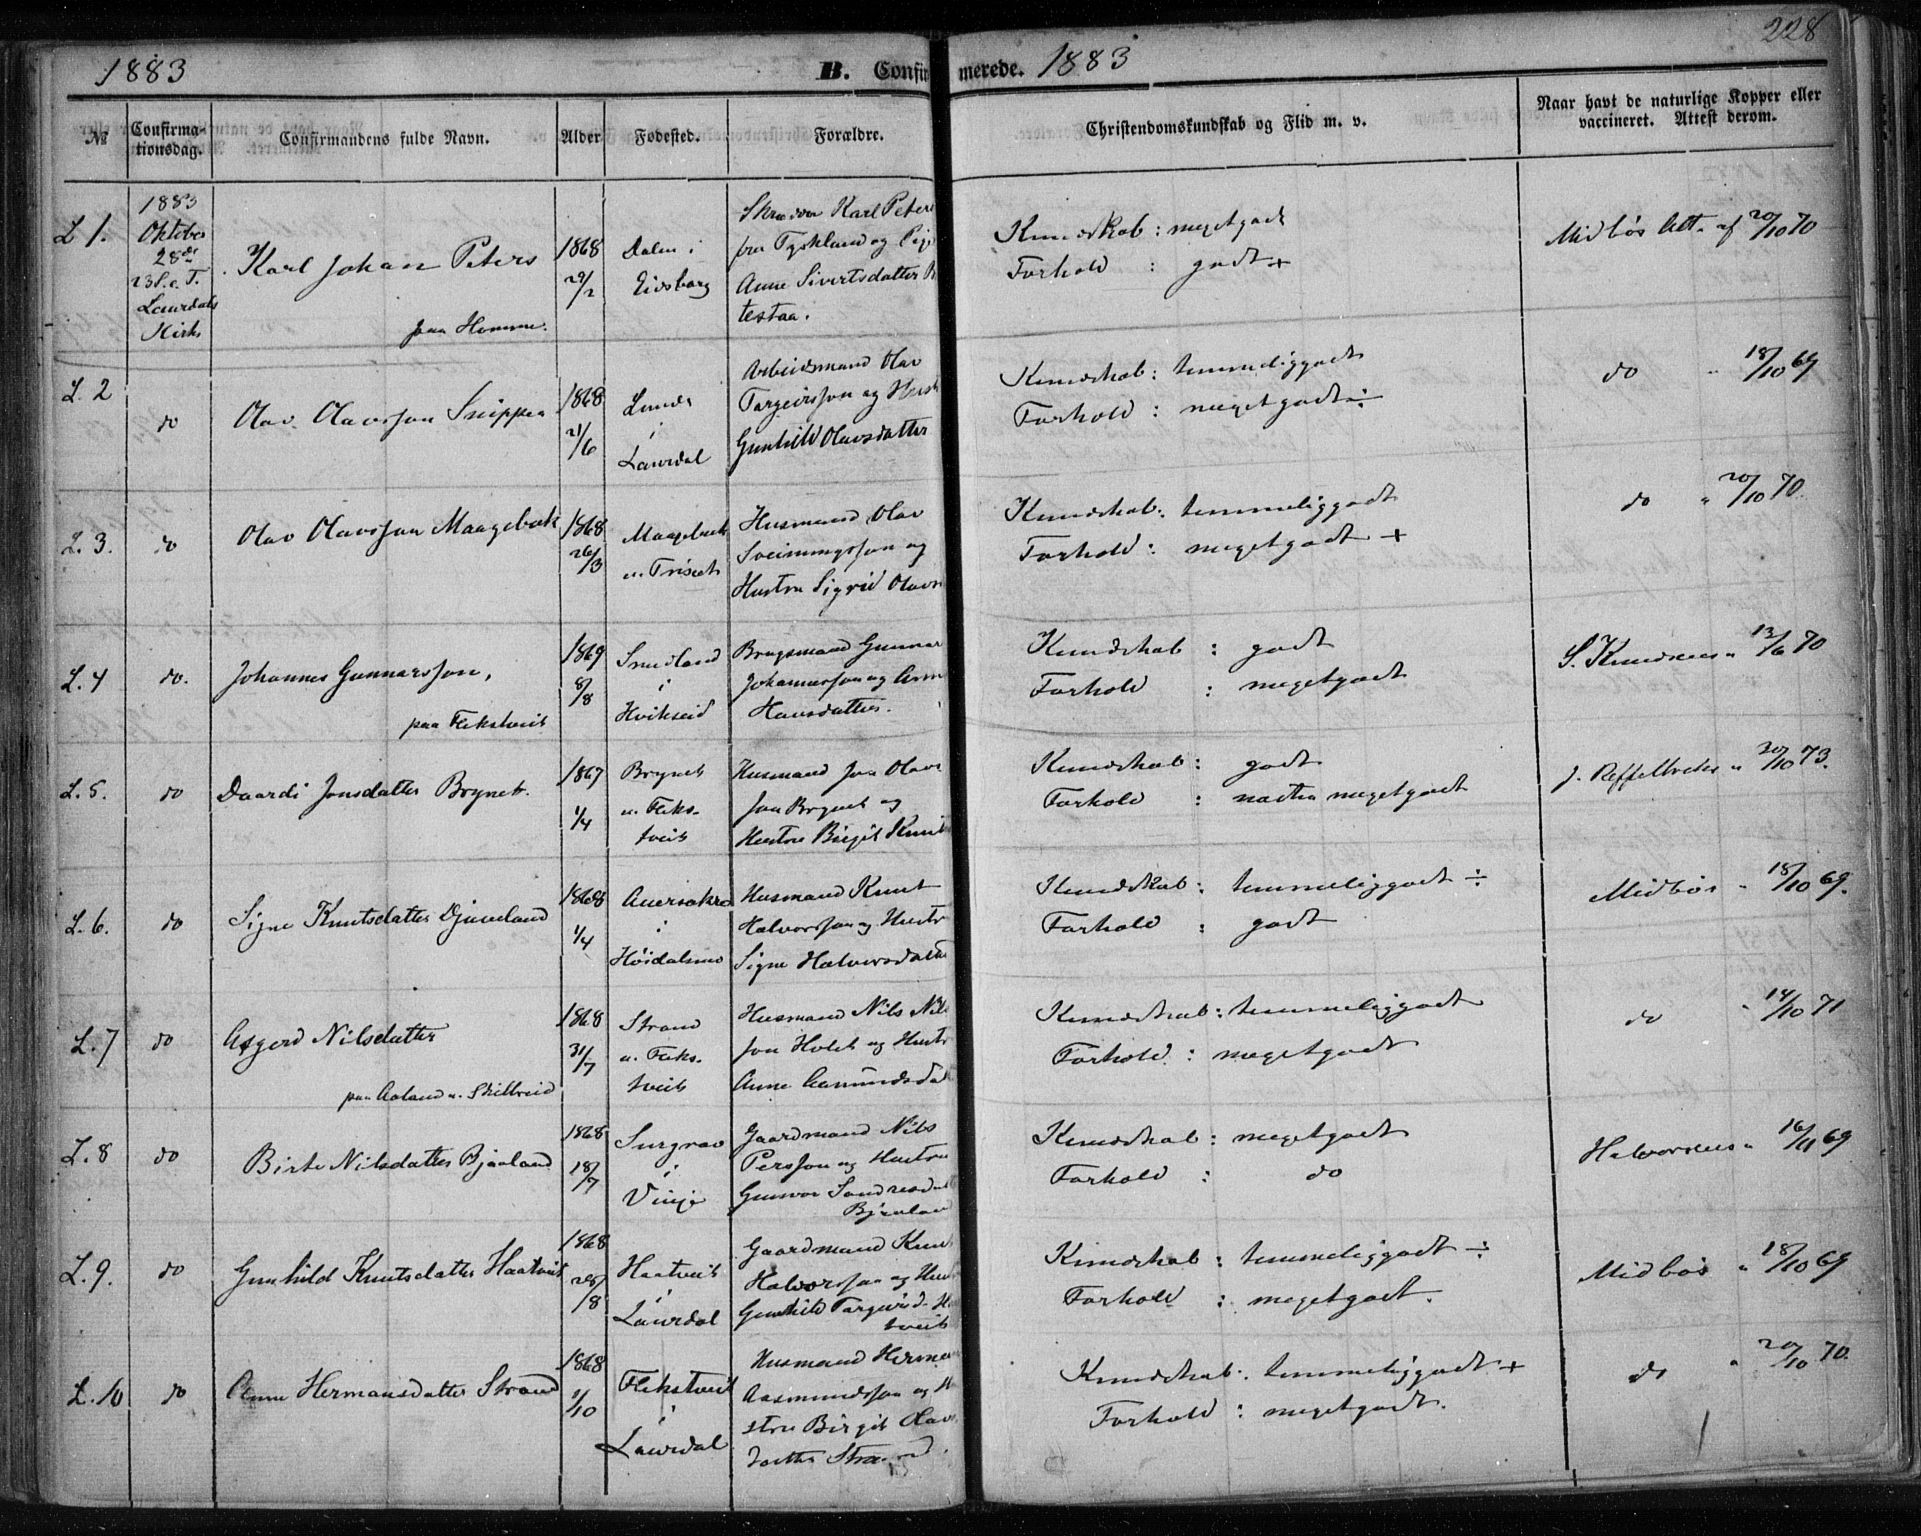 1883
B. Confirmerede. 1883
228
№
Confirmationsdag.
Confirmandens fulde Navn.
Alder
Fødested.
Forældre.
Christendomskundskab og Flid m. v.
Naar havt de naturlige Kopper eller
vaccineret. Attest derom.
L 1.
1883
Oktober
28de
23 S. e. T.
Laurdals
Kirke
Karl Johan Peters
paa Homme.
1868
29/2
Dalen i
Eidsborg
Karl Peters
fra Tyskland og
Anne Sivertsdatter
Kundskab : megetgodt
Forhold : godt +
Midbøs Att. af 20/10 70
L. 2
do
Olav Olavsson Snippen
1868
21/6
Lunde
i
Laurdal
Arbeidsmand Olav
Targeirsson og
Gunhild Olavsdatter
Kundskab : temmeliggodt
Forhold : megetgodt ÷
do " 18/10 69
L. 3.
do
Olav Olavsson Maagebæk
1868
26/3
Maagebæk
u. Triset
Husmand Olav
Sveinungsson og
Hustru Sigrid
Kundskab : temmeliggodt
Forhold : megetgodt +
do " 20/10 70.
L. 4
do.
Johannes Gunnarsson,
paa Flekstveit
1869
8/8
Smedland
i
Hvideseid
Brugsmand Gunnar
Johannesson og
Hansdatter.
Kundskab : godt
Forhold : megetgodt
S. Knudsens " 13/6 70
L. 5.
do
Daardi Jonsdatter Brynet.
1867
1/4
Brynet
u. Fleks-
tveit
Husmand Jon
son Brynet og
Hustru Birgit
Kundskab : godt
Forhold : næsten megetgodt
J. " 20/10 73.
L. 6.
do
Signe Knutsdatter Djuveland
1868
1/4
i
Høidalsmo
Husmand Knut
Halvorsson og
Signe Halvorsdatter
Kundskab : temmeliggodt ÷
Forhold : godt
Midbøs " 18/10 69.
L. 7
do
Asgerd Nilsdatter
paa Aoland u.
1868
31/7
Strand
u. Fleks-
tveit
Husmand Nils
son Holet og
Anne
Kundskab : temmeliggodt
Forhold : megetgodt
do " 14/10 71
L. 8
do
Birte Nilsdatter Bjaaland
1868
18/7
i
Vinje
Gaardmand Nils
Persson og Hustru
Gunvor
Kundskab : megetgodt
Forhold : do
Halvorsens " 16/11 69
L. 9.
do
Gunhild Knutsdatter Haatveit
1868
28/8
Haatveit
i
Laurdal
Gaardmand
Halvorsson og
Gunhild
tveit
Kundskab : temmeliggodt ÷
Forhold : megetgodt.
Midbøs " 18/10 69
L. 10
do
Anne Hermansdatter Strand
1868
1/10
Flekstveit
i
Laurdal
Husmand
Aasmundsson og
stru Birgit
datter Strand.
Kundskab : temmeliggodt +
Forhold : megetgodt.
do " 20/10 70.